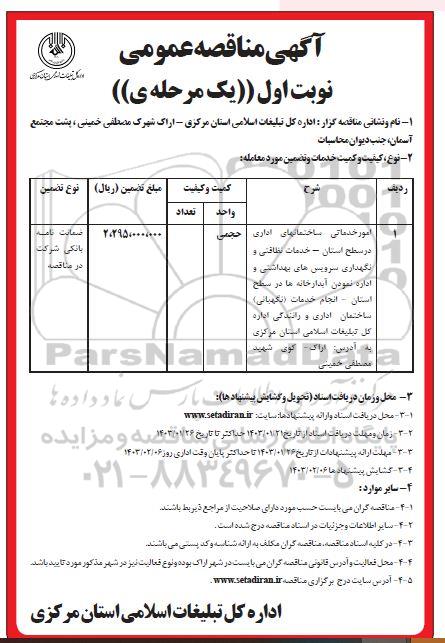 آگهی مناقصه عمومی
نوبت اول ((یک مرحله ی))
اداره کل تبلیغات اسلامی استان مرکزی
۱- نام ونشانی مناقصه گزار : اداره کل تبلیغات اسلامی استان مرکزی – اراک شهرک مصطفی خمینی ، پشت مجتمع
آسمان، جنب دیوان محاسبات
۲- نوع، کیفیت و کمیت خدمات وتضمین مورد معامله:
ردیف شرح کمیت وکیفیت مبلغ تضمین (ریال) نوع تضمین
واحد تعداد
۱ امورخدماتی ساختمانهای اداری حجمی ۲،۲۹۵،۰۰۰،۰۰۰ ضمانت نامه
درسطح استان – خدمات نظافتی و بانکی شرکت
نگهداری سرویس های بهداشتی و در مناقصه
اداره نمودن آبدارخانه ها در سطح
استان - انجام خدمات (نگهبانی)
ساختمان اداری و رانندگی اداره
کل تبلیغات اسلامی استان مرکزی
به آدرس: اراک- کوی شهید
مصطفی خمینی
ParsNamadData
۰۲۱-۸۸۳۴۹۶۷۰-۵
۳- محل وزمان دریافت اسناد (تحویل و گشایش پیشنهادها):
۳-۱- محل دریافت اسناد وارائه پیشنهادها: سایت: www.setadiran.ir
۳-۲- زمان ومهلت دریافت اسناد از تاریخ ۱۴۰۳/۰۱/۲۱ حداکثر تا تاریخ ۱۴۰۳/۰۱/۲۶
۳-۳- مهلت ارائه پیشنهادات از تاریخ ۱۴۰۳/۰۱/۲۶ تا حداکثر پایان وقت اداری روز ۱۴۰۳/۰۲/۰۶
۳-۴- گشایش پیشنهادها ۱۴۰۳/۰۲/۰۶
۴- سایر موارد :
۴-۱- مناقصه گران می بایست حسب مورد دارای صلاحیت از مراجع ذیربط باشند.
۴-۲- سایر اطلاعات وجزئیات در اسناد مناقصه درج شده است .
۴-۳- در کلیه اسناد مناقصه، مناقصه گران مکلف به ارائه شناسه و کد پستی می باشند.
۴-۴- محل فعالیت و آدرس قانونی مناقصه گران می بایست در شهر اراک بوده ونوع فعالیت نیز در شهر مذکور مورد تایید باشد.
۴-۵- آدرس سایت درج برگزاری مناقصه www.setadiran.ir .
اداره کل تبلیغات اسلامی استان مرکزی